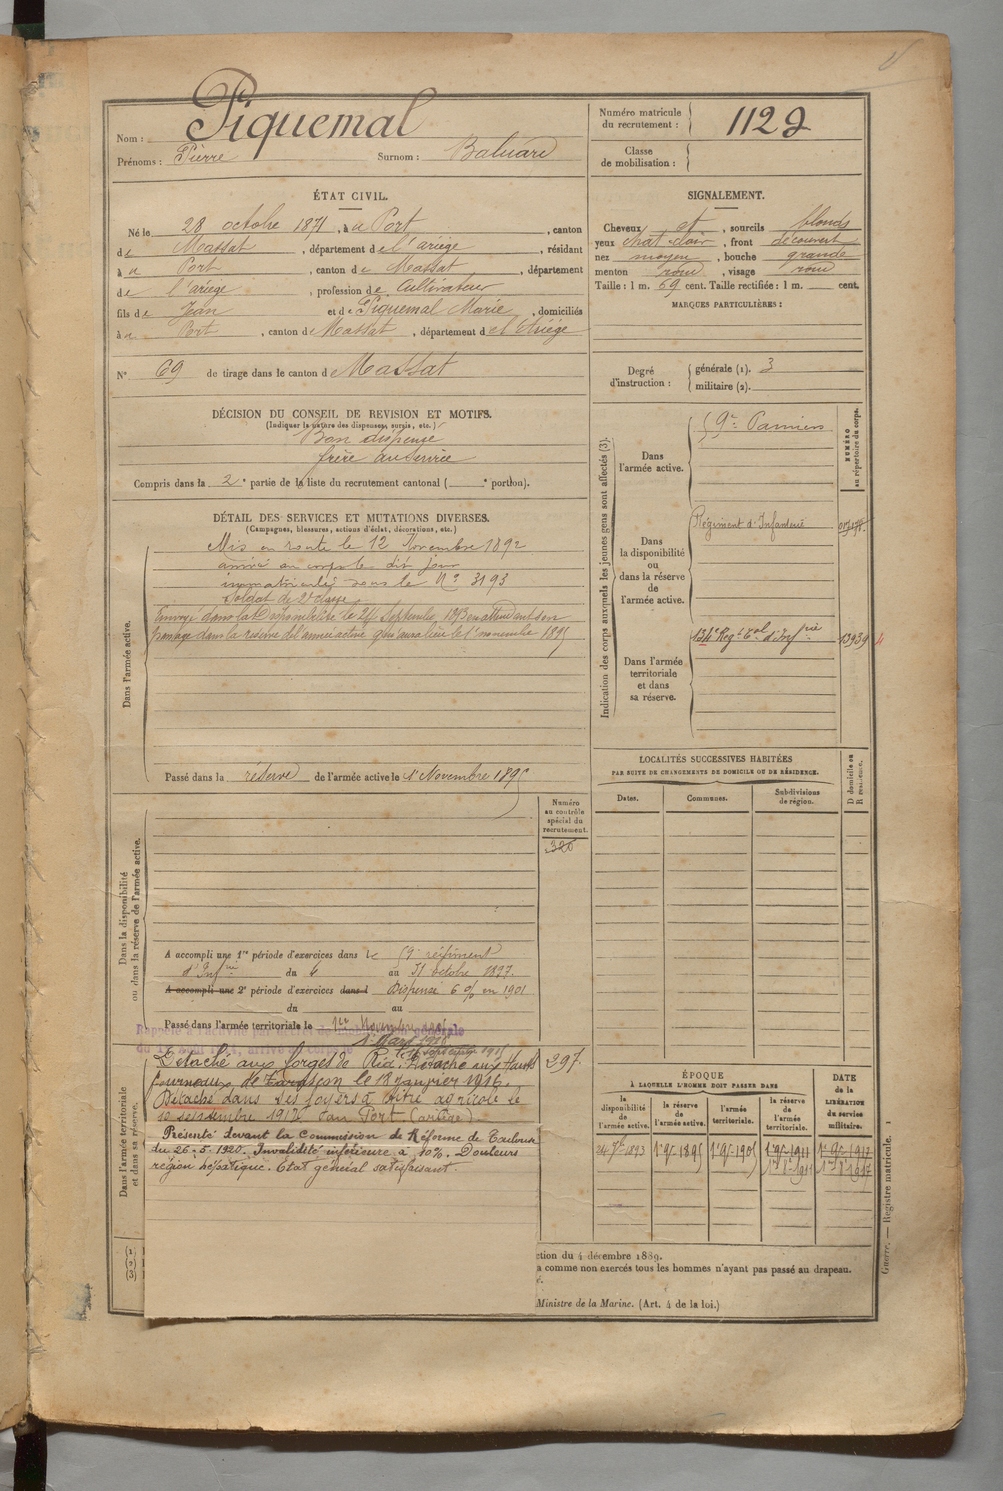 Nom : Piquemal
Prénoms : Pierre Surnom : Baluard
ÉTAT CIVIL.
Né le 28 octobre 1871, à Port, canton
de Massat, département de l'ariège, résidant
à Port, canton de Massat, département
de l'ariège, profession de Cultivateur
fils de Jean et de Piquemal Marie, domiciliés
à Port, canton de Massat, département de l'Ariège
N° 69 de tirage dans le canton de Massat
DÉCISION DU CONSEIL DE REVISION ET MOTIFS.
(Indiquer la nature des dispenses, sursis, etc.)
Bon dispensé
frère au service
Compris dans la 2e partie de la liste du recrutement cantonal ( e portion).
DÉTAIL DES SERVICES ET MUTATIONS DIVERSES.
(Campagnes, blessures, actions d'éclat, décorations, etc.)
Dans l'armée active.
Mis en route le 12 Novembre 1892
arrivé au corps le dit jour
immatriculé sous le N° 3193
Soldat de 2e classe
Envoyé dans la disponibilité le 24 Septembre 1893 en attendant son
passage dans la réserve de l'armée active qui aura lieu le 1er novembre 1895
Passé dans la réserve de l'armée active le 1er Novembre 1895
Numéro
au contrôle
spécial du
recrutement.
326
Dans la disponibilité
ou dans la réserve de l'armée active.
A accompli une 1re période d'exercices dans le 59e régiment
d'Infrie du 4 au 31 octobre 1897.
A accompli une 2e période d'exercices dans l Dispensé 6 % en 1901
du au
Passé dans l'armée territoriale le 1er Novembre 1905
Dans l'armée territoriale
et dans sa réserve.
Détaché aux forges de Ria. Détaché aux Hauts 297
fourneaux de Tarascon le 18 janvier 1916.
Détaché dans ses foyers à titre agricole le
10 septembre 1917 dan Port (ariège)
Présenté devant la Commission de Réforme de Toulouse
du 26-5-1920. Invalidité inférieure à 10%. Douleurs
région hépatique. Etat général satisfaisant.
(1)
(2)
(3)
ction du 4 décembre 1889.
a comme non exercés tous les hommes n'ayant pas passé au drapeau.
é.
Ministre de la Marine. (Art. 4 de la loi.)
Numéro matricule
du recrutement : 1122
Classe
de mobilisation :
SIGNALEMENT.
Cheveux et, sourcils blonds
yeux chat. clair, front découvert
nez moyen, bouche grande
menton rond, visage rond
Taille : 1 m. 69 cent. Taille rectifiée : 1 m. cent.
MARQUES PARTICULIÈRES :
Degré
d'instruction :
générale (1). 3
militaire (2).
Indication des corps auxquels les jeunes gens sont affectés (3).
NUMÉRO
au répertoire du corps.
Dans
l'armée active.
59e Pamiers
Dans
la disponibilité
ou
dans la réserve
de
l'armée active.
Régiment d'Infanterie
Dans l'armée
territoriale
et dans
sa réserve.
134e Regt Tal d'Infrie 13939
LOCALITÉS SUCCESSIVES HABITÉES
PAR SUITE DE CHANGEMENTS DE DOMICILE OU DE RÉSIDENCE.
Dates. Communes. Subdivisions
de région.
D domicile ou
R résidence.
ÉPOQUE
À LAQUELLE L'HOMME DOIT PASSER DANS
DATE
de la
LIBÉRATION
du service
militaire.
la
disponibilité
de
l'armée active.
la réserve
de
l'armée active.
l'armée
territoriale.
la réserve
de
l'armée
territoriale.
24 7bre 1893 1er 9bre 1895 1er 9bre 1905 1er 9bre 1911 1er 9bre 1917
Guerre. — Registre matricule. 1